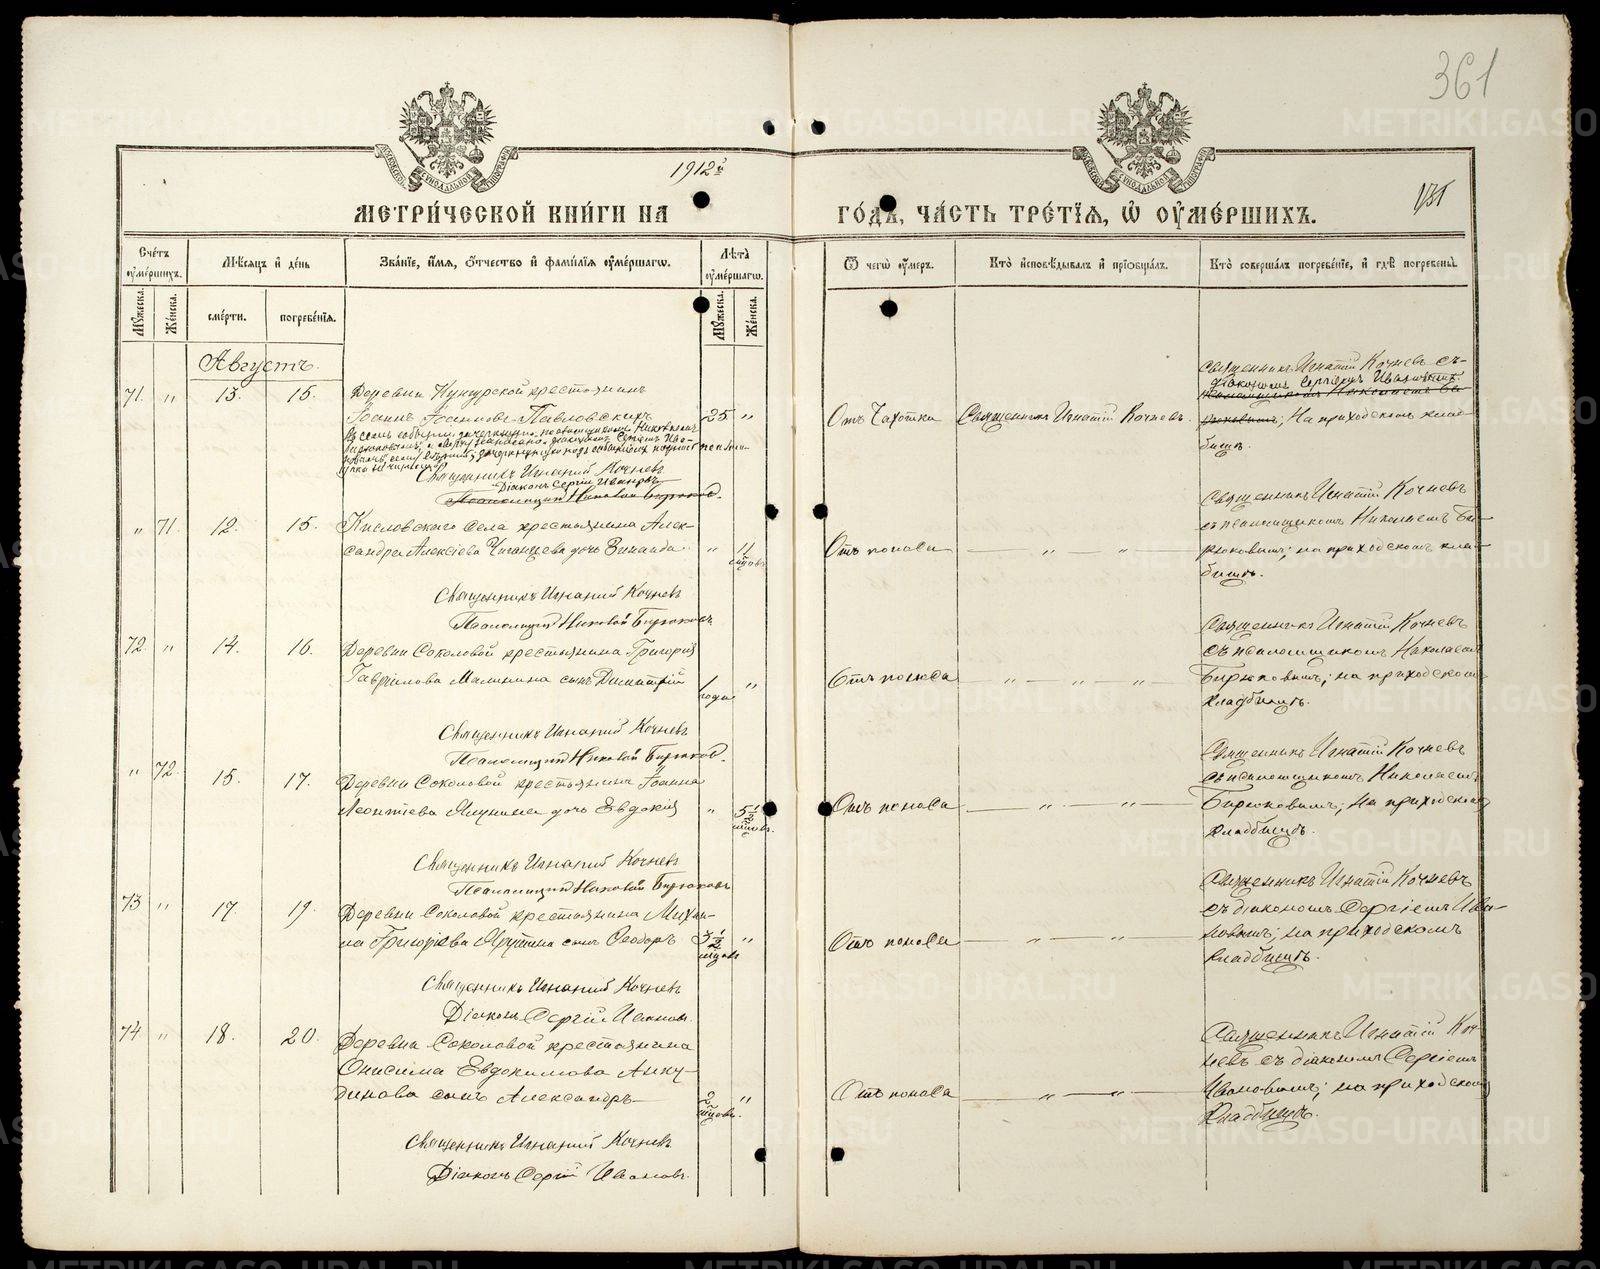 361
1912й
МЕТРИЧЕСКОЙ КНИГИ НА
ГОДЪ, ЧАСТЬ ТРЕТІЯ, Ѿ ОУМЕРШИХЪ.
Счетъ оумершихъ.
Мѣсяцъ и день
Званіе, имя, отчество и фамилія оумершагѡ.
Лѣта оумершагѡ.
Ѿ чегѡ оумеръ.
Кто исповѣдывалъ и пріобщалъ.
Кто совершалъ погребеніе, и гдѣ погребены.
Мужеска.
Женска.
смерти.
погребенія.
Мужеска.
Женска.
Августъ.
71. " 13. 15. Деревни Кунгурской крестьянинъ
Іоаннъ Павловскихъ 35 "
Отъ чахотки
Священникъ Игнатій Кочневъ.
Священникъ Игнатій Кочневъ съ
діакономъ Сергіемъ Ивановымъ
На приходскомъ клад-
бищѣ.
Священникъ Игнатій Кочневъ
Діаконъ Сергій Ивановъ
Псаломщикъ Николай Бирюковъ.
" 71. 12. 15. Кисловскаго села крестьянина Алек-
сандра Алексіева дочь Зинаида " 11 мцовъ
Отъ поноса " "
Священникъ Игнатій Кочневъ
съ псаломщикомъ Николаемъ Би-
рюковымъ; на приходскомъ клад-
бищѣ.
Священникъ Игнатій Кочневъ
Псаломщикъ Николай Бирюковъ.
72. " 14. 16. Деревни Соколовой крестьянина Григорія
Гавріилова Малинина сынъ Димитрій 1 года "
Отъ поноса " " "
Священникъ Игнатій Кочневъ
съ псаломщикомъ Николаемъ
Бирюковымъ; на приходскомъ
кладбищѣ.
Священникъ Игнатій Кочневъ
Псаломщикъ Николай Бирюковъ.
" 72. 15. 17. Деревни Соколовой крестьянина Іоанна
Леонтіева дочь Евдокія " 5½ мцовъ.
Отъ поноса " "
Священникъ Игнатій Кочневъ
съ псаломщикомъ Николаемъ
Бирюковымъ; на приходскомъ
кладбищѣ.
Священникъ Игнатій Кочневъ
Псаломщикъ Николай Бирюковъ
73 " 17. 19. Деревни Соколовой крестьянина Михаи-
ла Григоріева сынъ Ѳеодоръ 3½ мцовъ "
Отъ поноса " "
Священникъ Игнатій Кочневъ
съ діакономъ Сергіемъ Ива-
новымъ; на приходскомъ
кладбищѣ.
Священникъ Игнатій Кочневъ
Діаконъ Сергій Ивановъ.
74 " 18. 20. Деревни Соколовой крестьянина
Онисима Евдокимова Анку-
динова сынъ Александръ 2 мцовъ. "
Отъ поноса " "
Священникъ Игнатій Коч-
невъ съ діакономъ Сергіемъ
Ивановымъ; на приходскомъ
кладбищѣ.
Священникъ Игнатій Кочневъ
Діаконъ Сергій Ивановъ.
METRIKI.GASO-URAL.RU